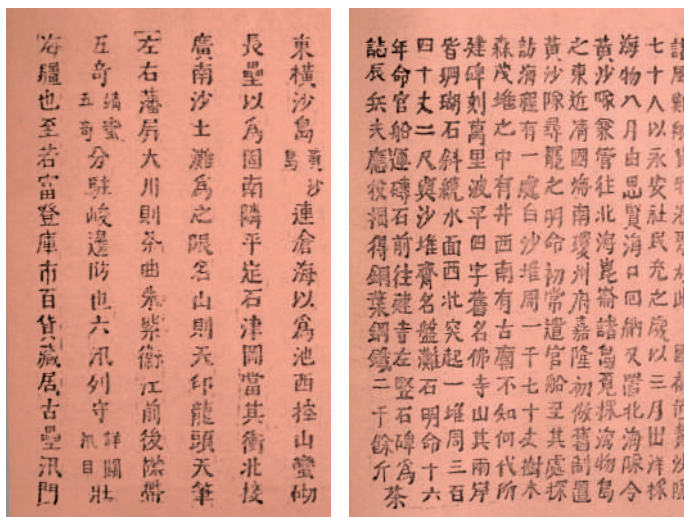 東橫沙島黃沙島連滄海以為池西控山蠻砌
長壘以為固南隣平定石津岡當其衝北接
廣南沙土灘為之限名山則天印龍頭天筆
左右藩屏大川則茶曲柴衛江前後襟帶
五奇靖蠻五奇分駐峻邊防也六汛列守詳關汛目壯
海疆也至若富登庫市百貨藏居古壘汛門
七十人以永安社民充之歲以三月出洋採
海物八月由思賢海口回納又置北海隊令
黃沙隊兼管往北海崑崙諸島覓採海物島
之東近清國海南瓊州府嘉隆初倣舊制置
黃沙隊尋罷之明命初常遣官船至其處採
訪海程有一處白沙堆周一千七十丈樹木
森茂堆之中有井西南有古廟不知何代所
建碑刻萬里波平四字舊名佛寺山其兩岸
皆珊瑚石斜繞水面西北突起一堆周三百
四十丈二尺與沙堆齊名盤灘石明命十六
年命官船運磚石前往建寺左豎石碑為
誌辰兵夫應役掘得銅葉鋼鐵二千餘斤茶